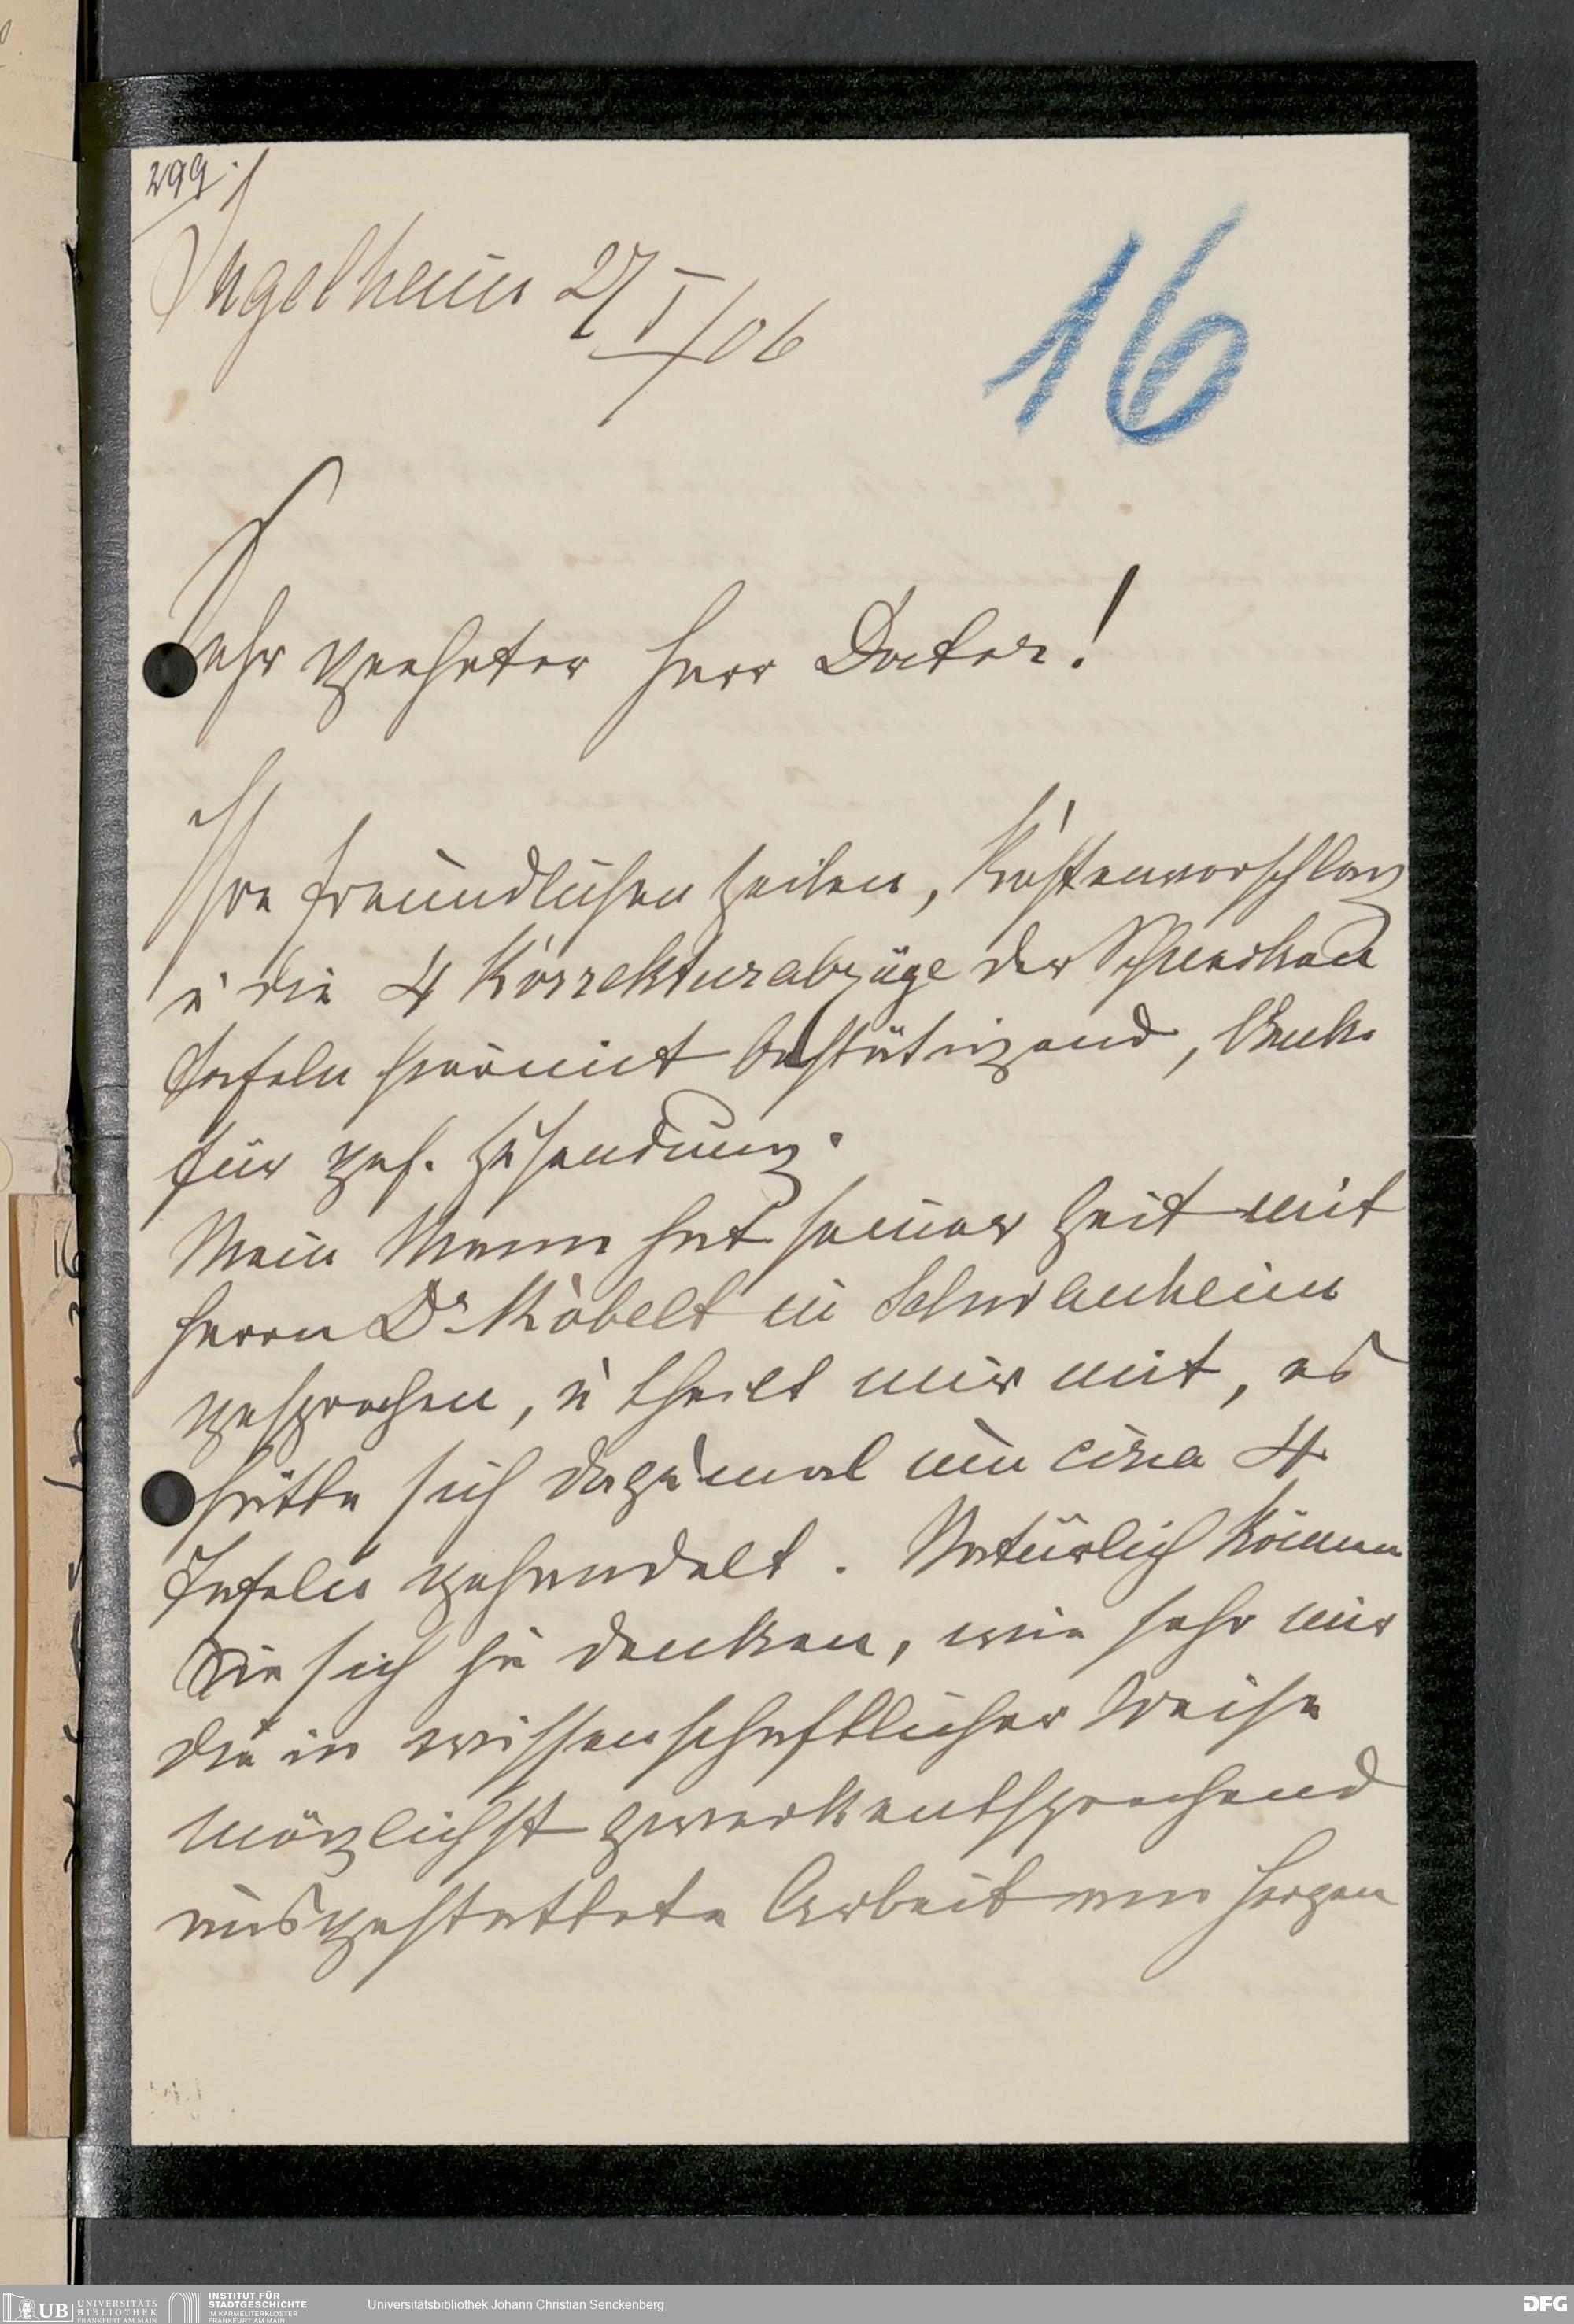 299.
Ingelheim 27/I/06
16
Sehr geehrter Herr Doctor!
Ihre freundlichen Zeilen, Kostenvorschlag
u die 4 Korrekturabzüge der
Tafeln hiermit bestätigend, danke
für gef. Zusendung.
Mein Mann hat seiner Zeit mit
Herrn Dr Kobelt in Schwanheim
gesprochen, u theilt mir mit, es
hätte sich dazumal um circa 4
Tafeln gehandelt. Natürlich können
Sie sich ja denken, wie sehr mir
die in wissenschaftlicher Weise
möglichst zweckentsprechend
ausgestattete Arbeit am Herzen
UB UNIVERSITÄTS
BIBLIOTHEK
FRANKFURT AM MAIN
INSTITUT FÜR
STADTGESCHICHTE
IM KARMELITERKLOSTER
FRANKFURT AM MAIN
Universitätsbibliothek Johann Christian Senckenberg
DFG